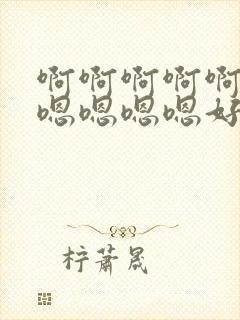 啊啊啊啊啊
嗯嗯嗯嗯好
柠萧晟